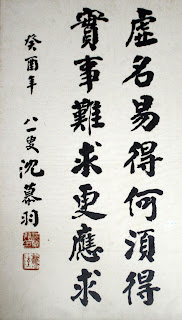 虛名易得何須得
實事難求更應求
癸酉年
八一叟沈慕羽